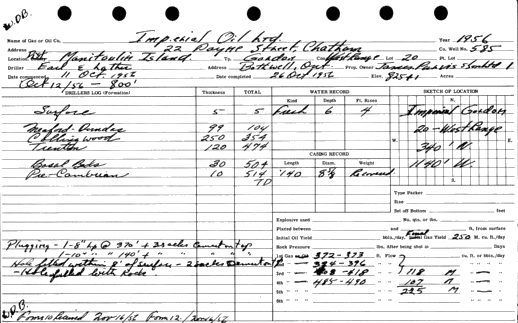 W.D.B.
Name of Gas or Oil Co. Imperial Oil Ltd Year 1956
Address 22 Dayne Street, Chatham Co. Well No. 585
Location Manitoulin Island Tp. Gordon West Range Lot 20 Pt. Lot
Driller Earl E. Address Bothwell, Ont Prop. Owner
Date commenced 11 Oct. 1956 Date completed 26 Oct 1956 Elev. Acres
Oct 12/56 - 800'
DRILLERS LOG (Formation) Thickness TOTAL WATER RECORD SKETCH OF LOCATION
Kind Depth Ft. Rises N.
Surface 5 5 Fresh 6 4 Imperial Gordon
Meaford-Dundas 99 104 20 - West Range
Collingwood 250 354 W. 340' N. E.
Trenton 120 474 CASING RECORD 1140' W.
Basal Beds 30 504 Length Diam. Weight
Pre-Cambrian 10 514 140 8¼ Recovered S.
TD
Type Packer
Size
Set off Bottom feet
Explosive used No. qts. or lbs.
Placed between and ft. from surface
Initial Oil Yield Bbls./day Final Gas Yield 250 M. cu. ft./day
Rock Pressure lbs. After being shot in Days
Plugging - 1-8" Lp @ 370' + 2 sacks Cement on top 1st Gas 372-373 Ft. Flow cu. ft. or Bbls./day
1-10" " 140' + " " " " 384-396
Hole filled within 8' of surface - 2 sacks Cement 3rd 618 118 M
- Hole filled with Rocks 4th 485-490 107 M
5th 225 M
6th
W.D.B.
Form 10 Received Nov 16/56 Form 12 / Nov 16/56